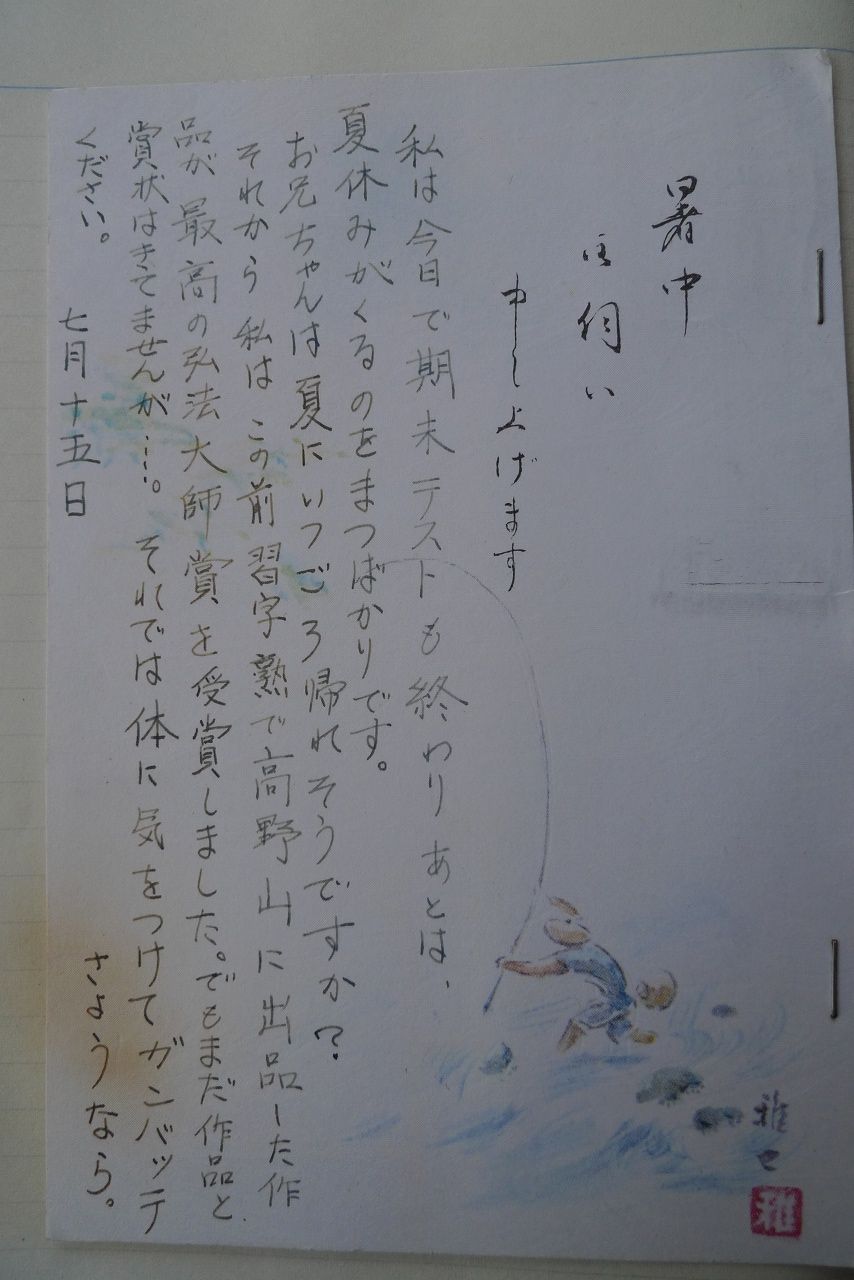 暑中
お伺い
申し上げます
私は今日で期末テストも終わりあとは、
夏休みがくるのをまつばかりです。
お兄ちゃんは夏にいつごろ帰れそうですか?
それから私はこの前習字熟で高野山に出品した作
品が最高の弘法大師賞を受賞しました。でもまだ作品と
賞状はきてませんが…。それでは体に気をつけてガンバッテ
ください。
さようなら。
七月十五日
雅
雅